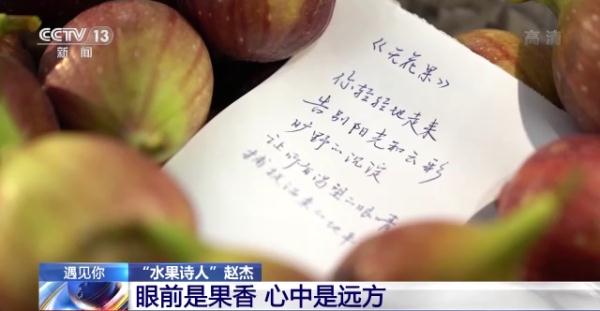 CCTV 13
新闻
高清
《无花果》
你轻轻地走来
告别阳光和云彩
旷野の沉淀
让所有渴望の眼
遇见你
“水果诗人”赵杰
眼前是果香 心中是远方